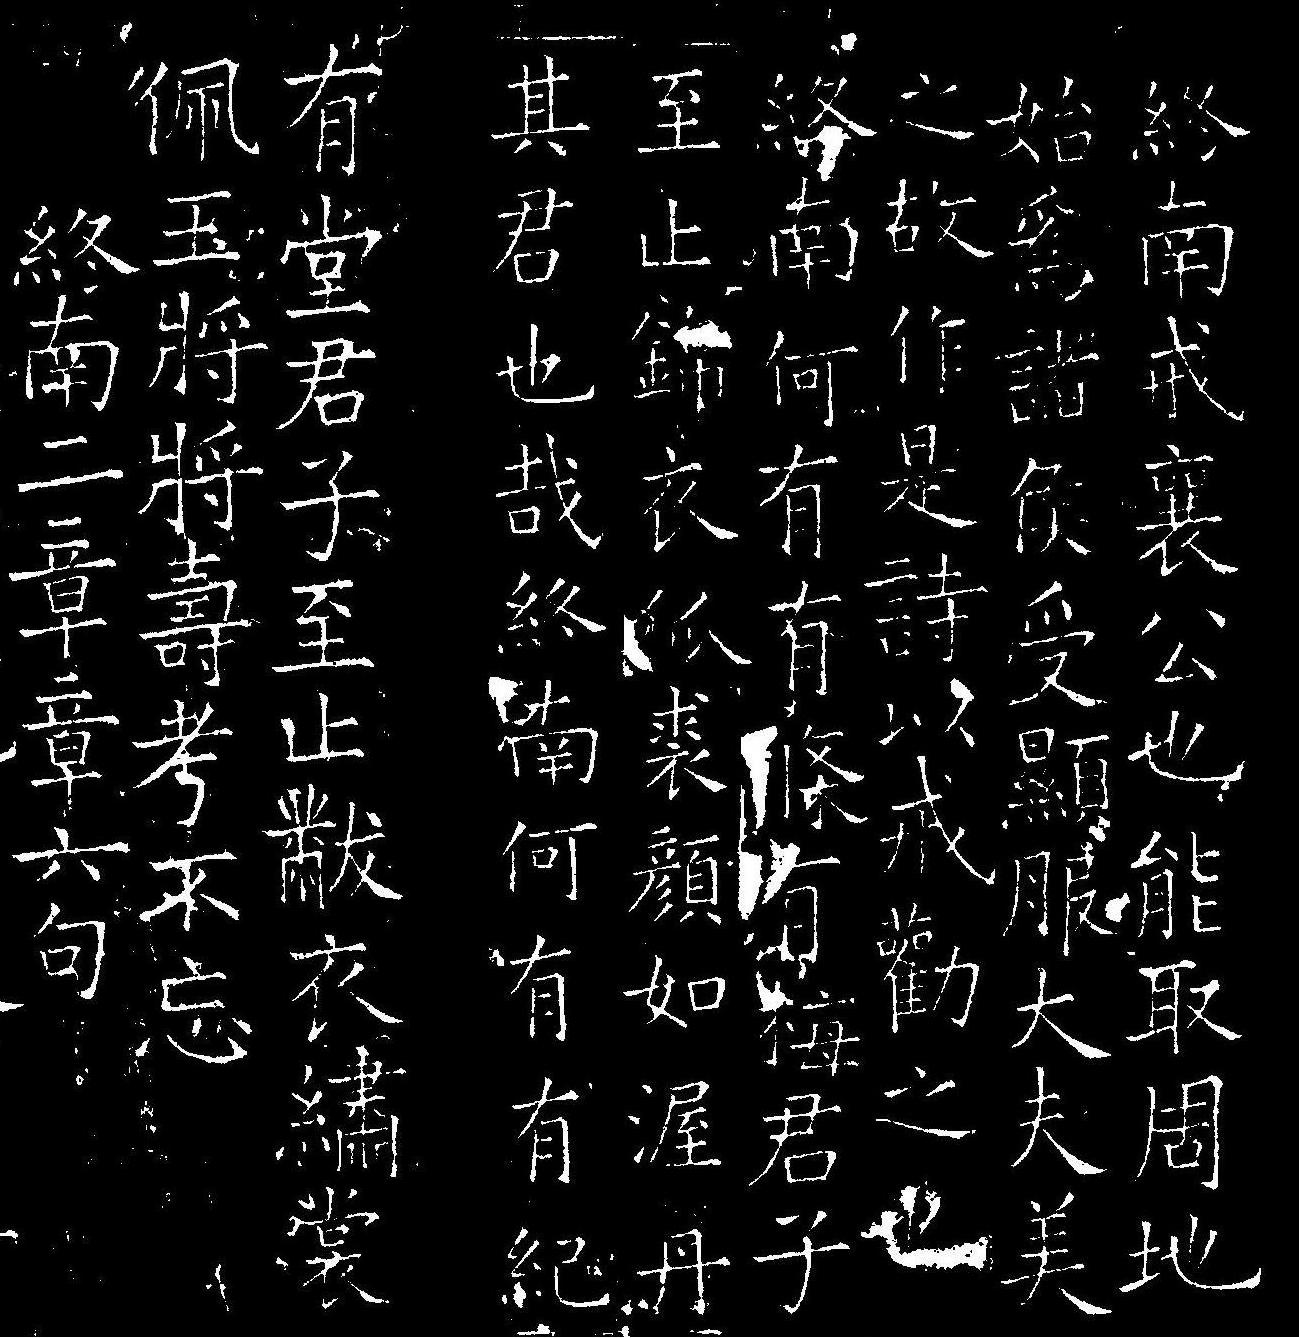 終南戒襄公也能取周地
始爲諸侯受顯服大夫美
之故作是詩以戒勸之也
終南何有有條有梅君子
至止錦衣狐裘顏如渥丹
其君也哉終南何有有紀
有堂君子至止黻衣繡裳
佩玉將將壽考不忘
終南二章章六句